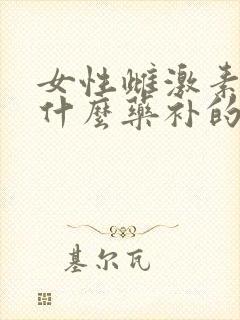 女性雌激素
什麼藥补的
基尔瓦